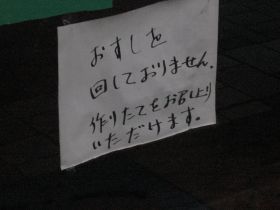 おすしを
回しておりません。
作りたてをお召し上り
いただけます。